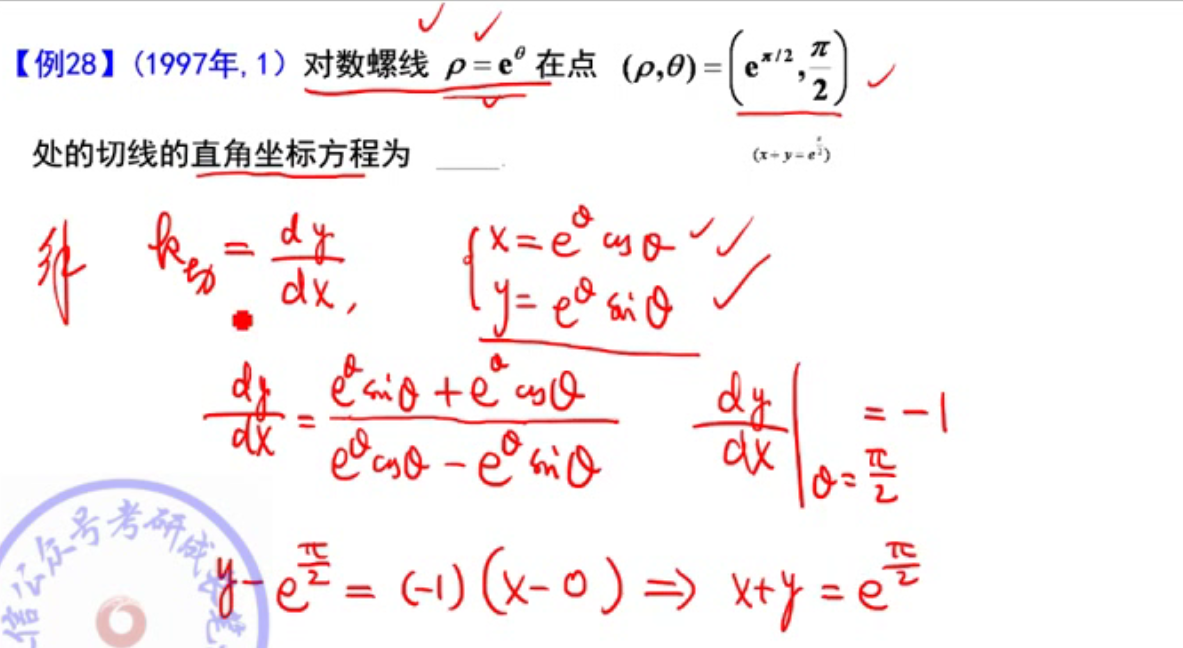 【例28】(1997年,1) 对数螺线 ρ=e^θ 在点 (ρ,θ)=(e^{π/2}, π/2)
处的切线的直角坐标方程为 ____.
(x+y=e^{π/2})
解 k切 = dy/dx, { x=e^θ cosθ
y=e^θ sinθ
dy/dx = (e^θ sinθ + e^θ cosθ)/(e^θ cosθ - e^θ sinθ) dy/dx |θ=π/2 = -1
y-e^{π/2} = (-1)(x-0) ⇒ x+y=e^{π/2}
信公众号考研成
笔